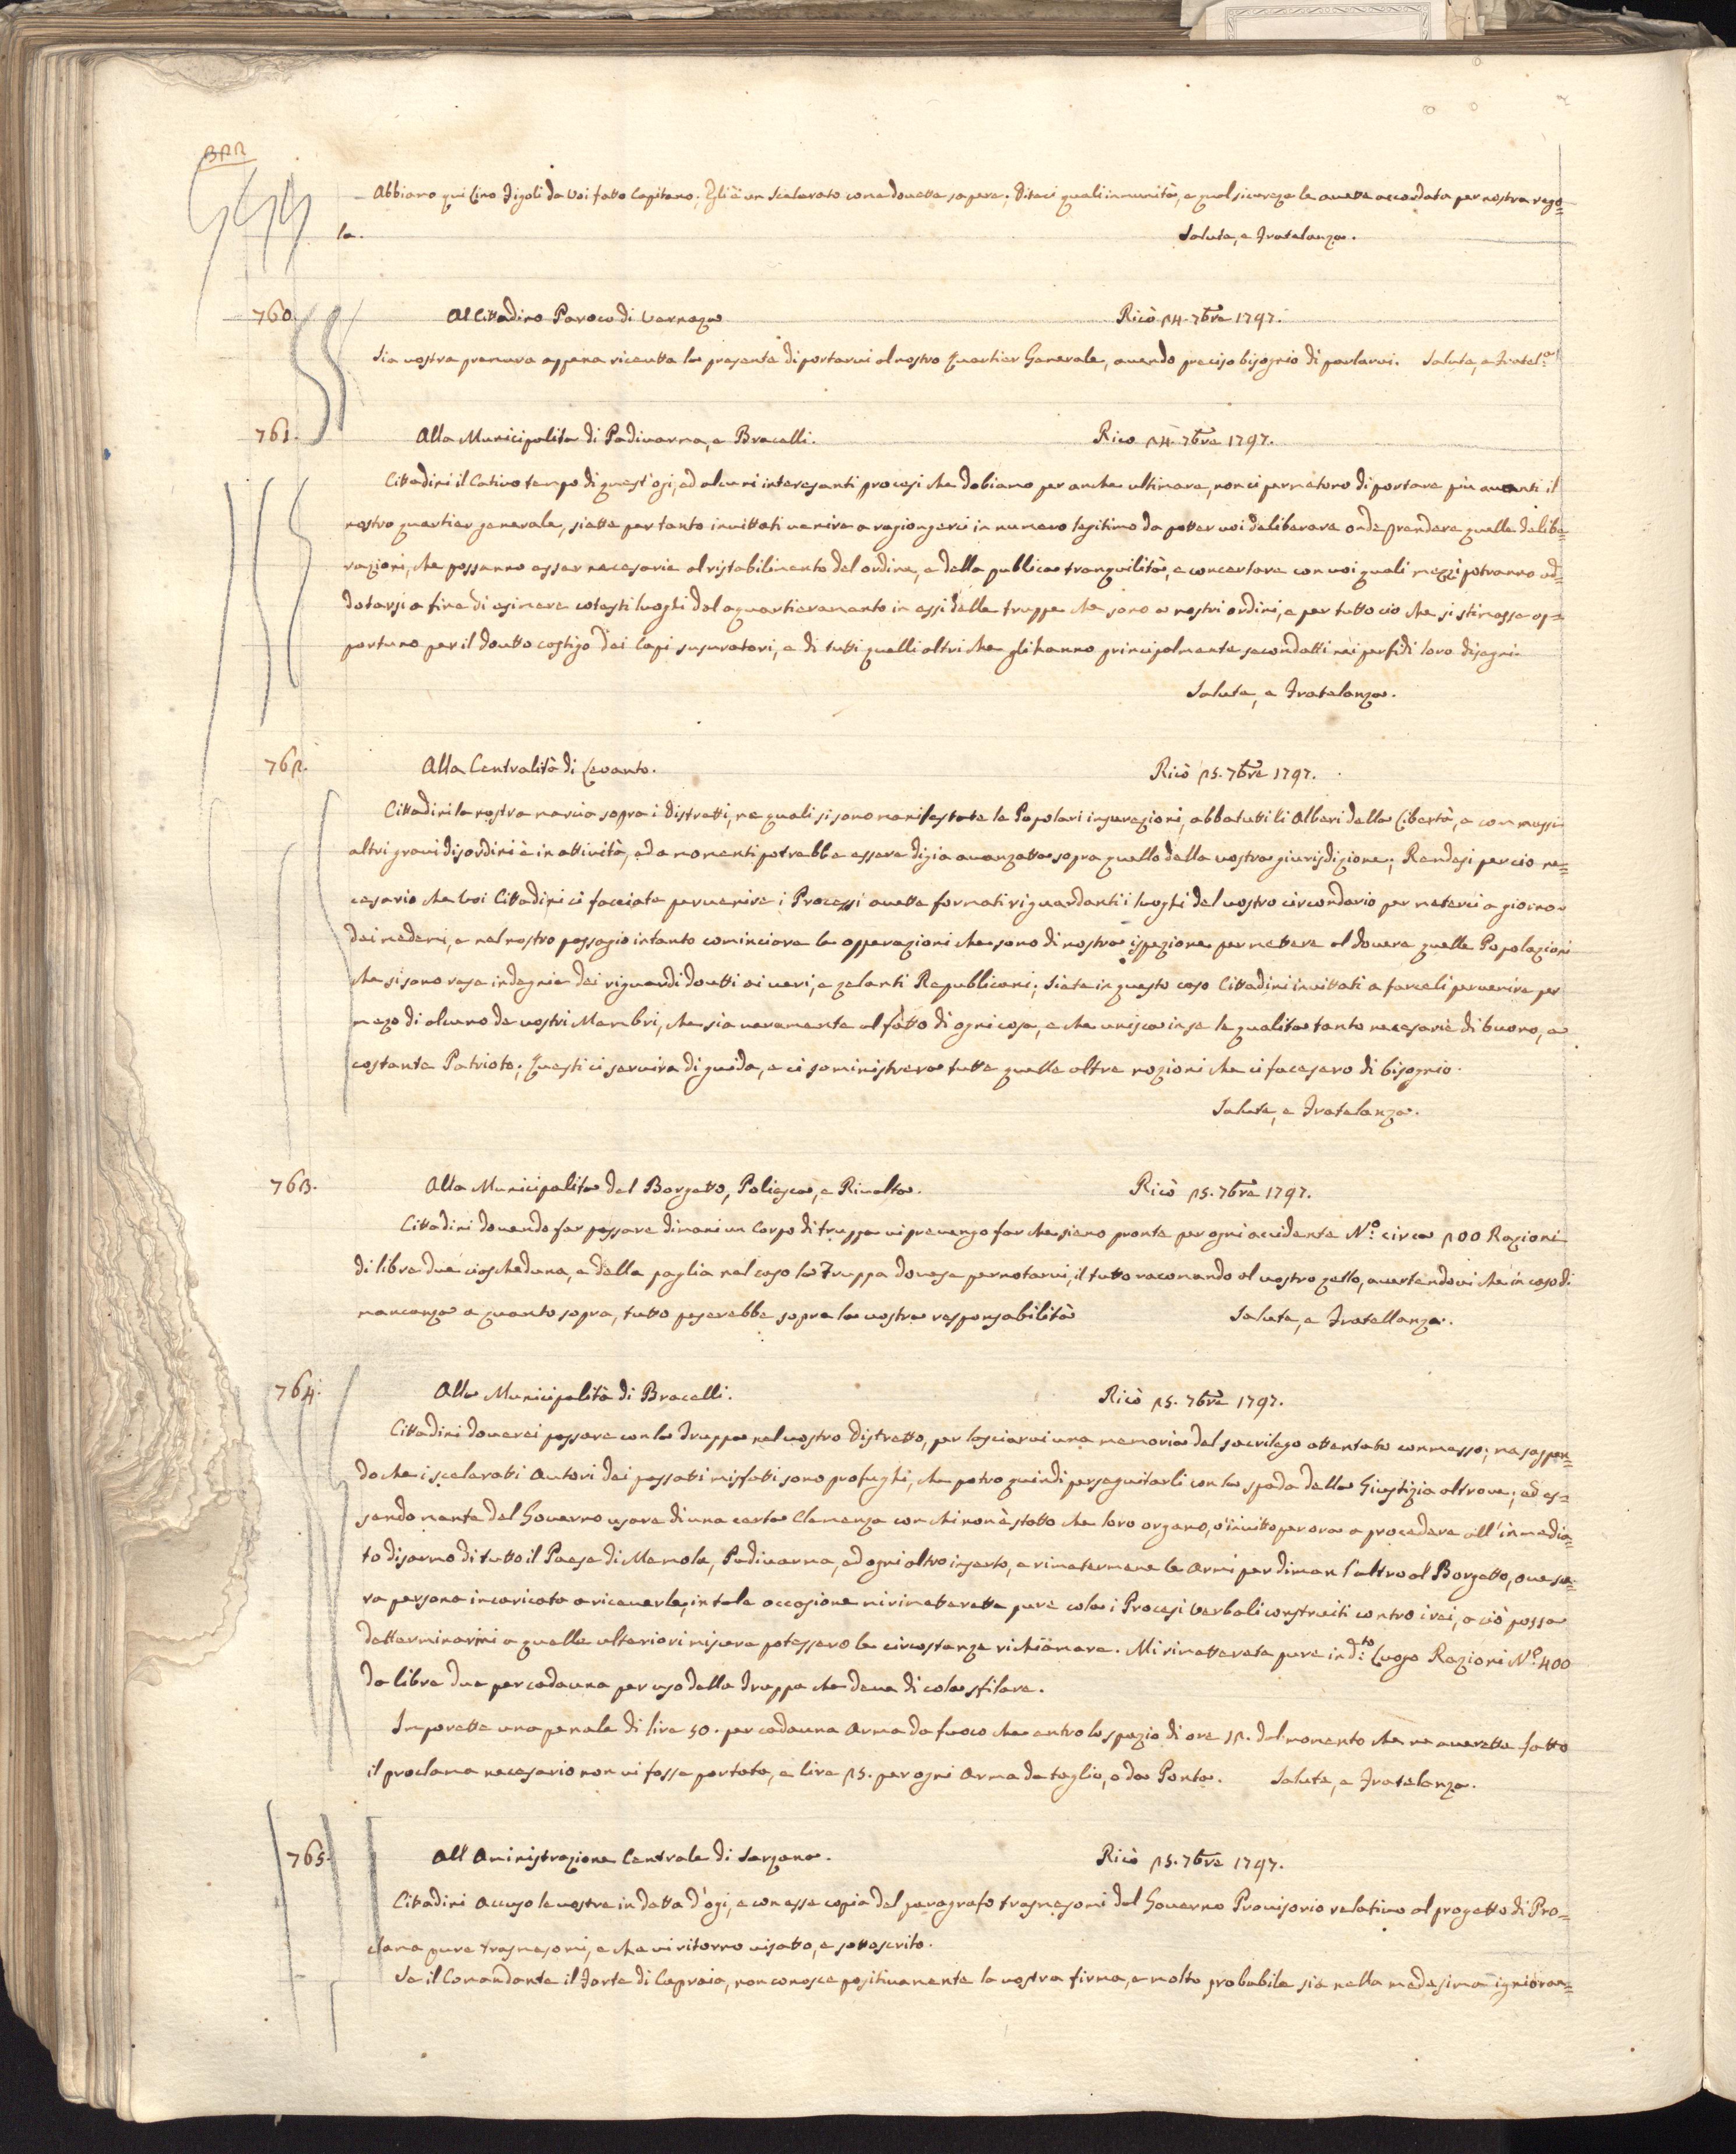 Abbiamo qui Lino Figoli da Voi fatto Capitano; Egli è un Scelerato come dovette sapere; Diteci quali inmunità, e qual sicureza le avette accordata per nostra rego=
la. Salute, e Fratelanza.
760. Al Cittadino Paroco di Vernaza Ricò 24. 7bre 1797.
Sia vostra premura appena ricevutta la presente di portarvi al nostro Quartier Generale, avendo preciso bisognio di parlarvi. Salute, e Fratel.a
761. Alla Municipalita di Padivarma, e Bracelli. Rico 24. 7bre 1797.
Cittadini il Cativo tempo di quest'ogi, ed alcuni interesanti procesi che dobiamo per anche ultimare, non ci permetono di portare più avanti il
nostro quartier generale, siatte per tanto invittati venire a ragiongerci in numero legitimo da potter voi deliberare onde prendere quelle delibe=
razioni, che possanno esser necesarie al ristabilimento del ordine, e della publica tranquilità, e concertare con voi quali mezzi potranno ad=
dotarsi a fine di esimere cotesti luoghi dal aquartieramento in essi delle truppe che sono a nostri ordini, e per tutto cio che si stimasse op=
portuno per il dovutto castigo dei Capi susuratori, e di tutti quelli altri che gli hanno principalmente secondatti nei perfidi loro disegni.
Salute, e Fratelanza.
762. Alla Centralità di Levanto. Ricò 25. 7bre 1797.
Cittadini la nostra marcia sopra i distretti, ne quali si sono manifestate le Popolari insurezioni, abbatutti li Alberi della Libertà, e commessi
altri gravi disordini è in attività, ed a momenti potrebbe essere digia avanzatta sopra quello della vostra giurisdizione; Rendesi per cio ne=
cesario che Voi Cittadini ci facciate pervenire i Processi avette formati riguardanti i luoghi del vostro circondario per meterci a giorno
dei medemi, e nel nostro passagio intanto cominciare le opperazioni che sono di nostra ispezione per mettere al dovere quelle Popolazioni
che si sono rese indegnie dei riguardi dovutti ai veri, e zelanti Republicani; Siate in questo caso Cittadini invittati a farceli pervenire per
mezo di alcuno de vostri Membri, che sia veramente al fatto di ogni cosa, e che unisca in se le qualita tanto necesarie di buono, e
costante Patriota; Questi ci servira di guida, e ci soministrera tutte quelle altre nozioni che ci facesero di bisognio.
Salute, e Fratelanza.
763. Alla Municipalita del Borgetto, Poliasca, e Rivalta. Ricò 25. 7bre 1797.
Cittadini dovendo far passare dimani un Corpo di truppa vi prevengo far che sieno pronte per ogni accidente N.o circa 200 Razioni
di libre due ciascheduna, e della paglia nel caso la Truppa dovesse pernotarvi, il tutto racomando al vostro zello, avertendovi che in caso di
mancanza a quanto sopra, tutto peserebbe sopra la vostra responsabilità Salute, e Fratellanza.
764. Alla Municipalità di Bracelli. Ricò 25. 7bre 1797.
Cittadini doverei passare con la Truppa nel vostro Distretto, per lasciarvi una memoria del sacrilego attentato commesso; ma sappen=
do che i scelerati Autori dei passati misfatti sono profughi, che potro quindi perseguitarli con la spada della Giustizia altrove; ed es=
sendo mente del Governo usare di una certa Clemenza con chi non è statto che loro organo, v'invitto per ora a procedere all'inmedia=
to disarmo di tutto il Paese di Memola, Padivarma, ed ogni altro inserto, e rimetermene le Armi per diman l'altro al Borgetto, ove sa=
ra persona incaricata a riceverle, in tale occasione mi rimetterette pure cola i Procesi Verbali construiti contro i rei, a ciò possa
detterminarmi a quelle ulteriori misure potessero le circostanze richiamare. Mi rimetterete pure in d:to Luogo Razioni N.o 400
da libre due per cadauna per uso della Truppa che deve di cola sfilare.
Imporette una penale di lire 50. per cadauna Arma da fuoco che entro lo spazio di ore 12. dal momento che ne averette fatto
il proclama necesario non vi fosse portata, e lire 25. per ogni Arma da taglio, e da Ponta. Salute, e Fratelanza.
765. All Aministrazione Centrale di Sarzana. Ricò 25. 7bre 1797.
Cittadini Accuso le vostre in datta d'ogi, e con esse copia del paragrafo trasmesomi dal Governo Provisorio relativo al progetto di Pro=
clama pure trasmesomi, e che vi ritorno visatto, e sottoscrito.
Se il Comandante il Forte di Capraia, non conosce positivamente la vostra firma, e molto probabile sia nella medesima ignioran=